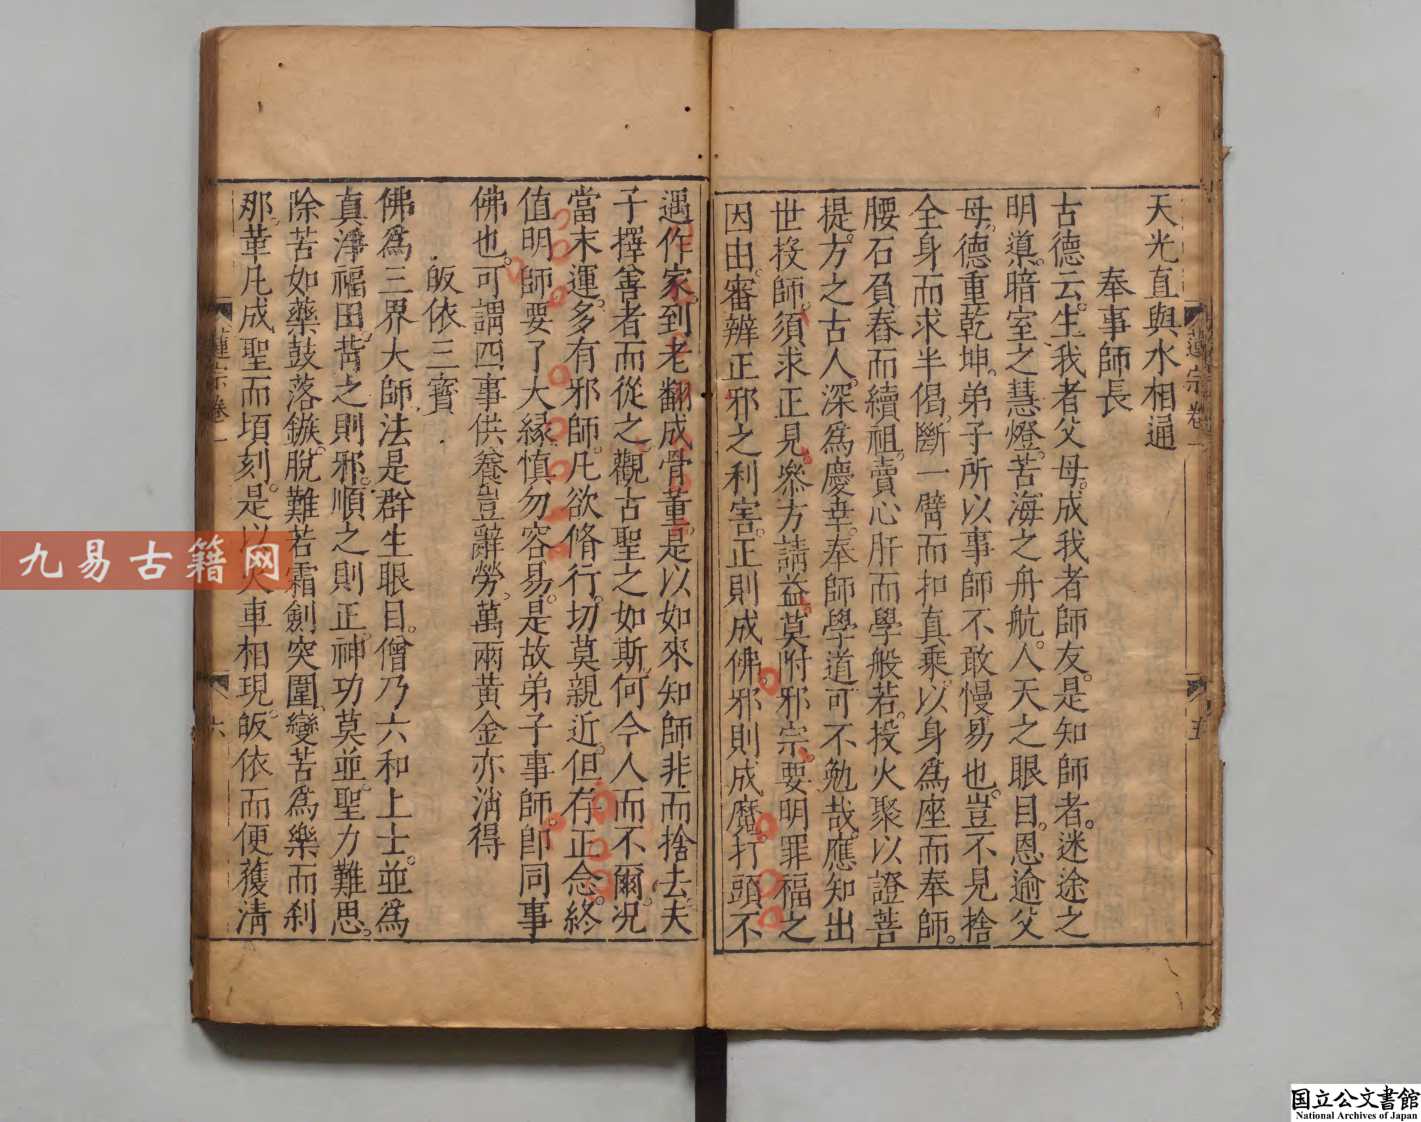 天光直與水相通
奉事師長
古德云。生我者父母。成我者師友。是知師者。迷途之
明導。暗室之慧燈。苦海之舟航。人天之眼目。恩逾父
母。德重乾坤。弟子所以事師不敢慢易也。豈不見捨
全身而求半偈。斷一臂而扣真乘。以身為座而奉師。
腰石負舂而續祖。賣心肝而學般若。投火聚以證菩
提。方之古人。深為慶幸。奉師學道可不勉哉。應知出
世投師。須求正見。叅方請益。莫附邪宗。要明罪福之
因由。審辨正邪之利害。正則成佛。邪則成魔。打頭不
蓮宗卷一
五
遇作家。到老翻成骨董。是以如來知師非而捨去。夫
子擇善者而從之。觀古聖之如斯。何今人而不爾。況
當末運。多有邪師。凡欲脩行。切莫親近。但存正念。終
值明師。要了大緣。慎勿容易。是故弟子事師。即同事
佛也。可謂四事供養豈辭勞。萬兩黃金亦消得
皈依三寶
佛為三界大師法是群生眼目。僧乃六和上士。並為
真淨福田。背之則邪。順之則正。神功莫並。聖力難思。
除苦如藥鼓落鏃。脫難若霜劍突圍。變苦為樂而剎
那。革凡成聖而頃刻。是以火車相現。皈依而便獲清
蓮宗卷一
六
九易古籍网
国立公文書館
National Archives of Japan